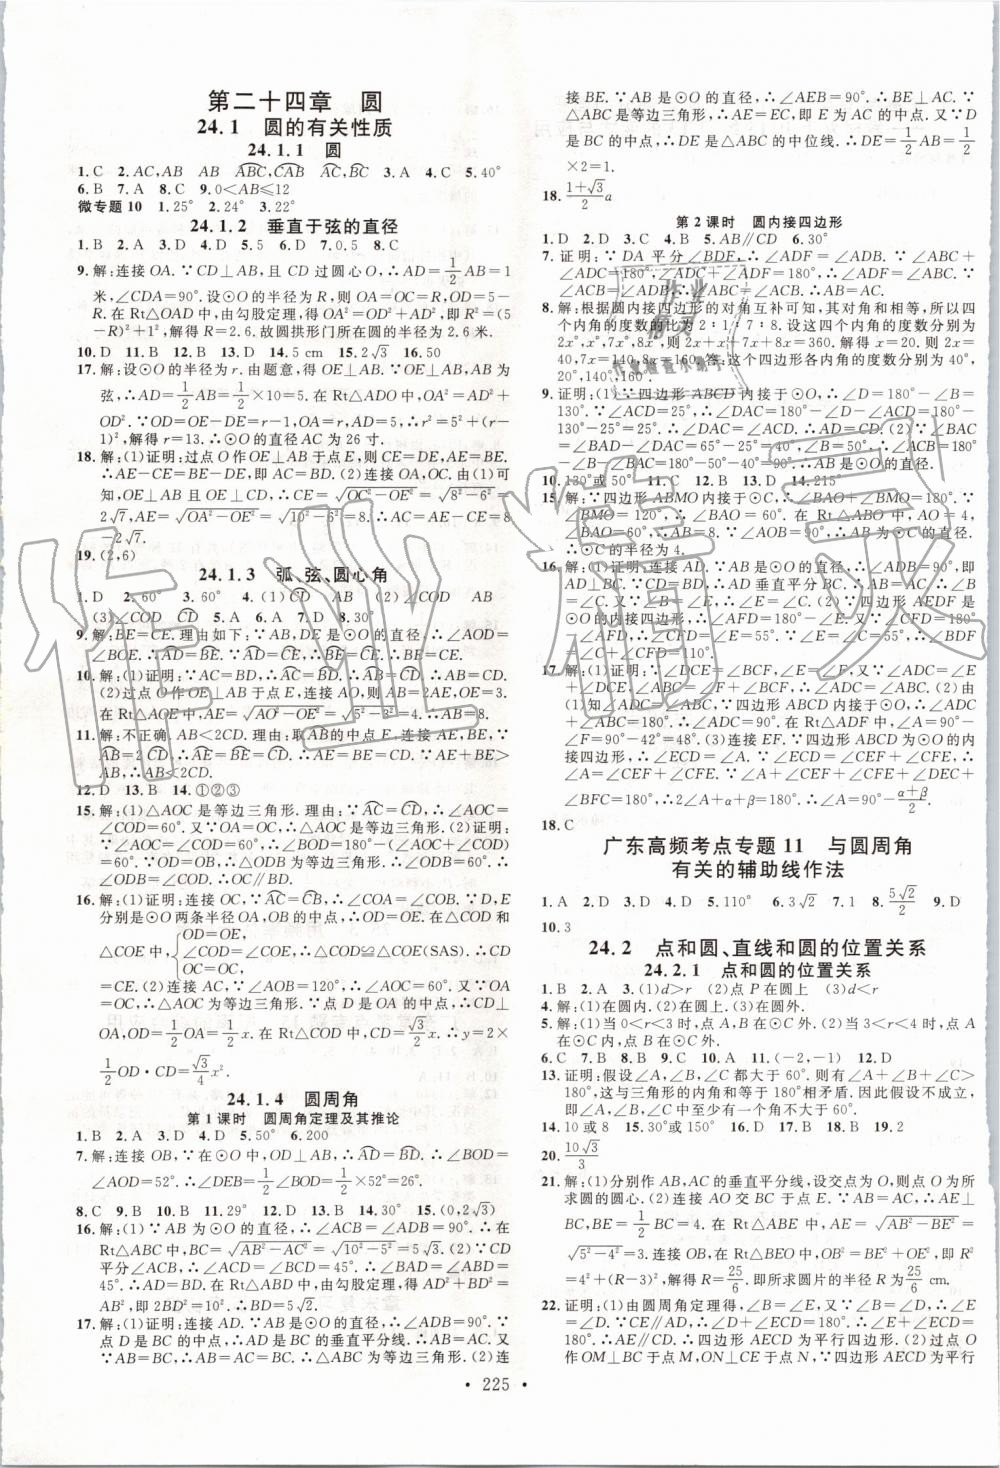 第二十四章 圆
24.1 圆的有关性质
24.1.1 圆
1.C 2.AC,AB AB ABC,CAB AC,BC 3.A 4.C 5.40°
6.B 7.A 8.C 9.0<AB≤12
微专题10 1.25° 2.24° 3.22°
24.1.2 垂直于弦的直径
1.B 2.A 3.D 4.D 5.5 6.D 7.0.5 8.C
9.解:连接OA.∵CD⊥AB,且CD过圆心O,∴AD=1/2AB=1
米,∠CDA=90°.设⊙O的半径为R,则OA=OC=R,OD=5-
R.在Rt△OAD中,由勾股定理,得OA²=OD²+AD²,即R²=(5-
R)²+1²,解得R=2.6.故圆拱形门所在圆的半径为2.6米.
10.D 11.B 12.B 13.D 14.5 cm 15.2√3 16.50
17.解:设⊙O的半径为r.由题意,得OE⊥AB.∵OE⊥AB,AB为
弦,∴AD=1/2AB=1/2×10=5.在Rt△ADO中,OA²=OD²+
AD².∵CE=BE=DE=1,∴OD=OE-DE=r-1,∴r²=5²+(r-
1)²,解得r=13.∴⊙O的直径AC为26寸.
18.解:(1)证明:过点O作OE⊥AB于点E,则CE=DE,AE=BE.
∴AE-CE=BE-DE,即AC=BD. (2)连接OA,OC.由(1)可
知,OE⊥AB且OE⊥CD,∴CE=√OC²-OE²=√8²-6²=
2√7,AE=√OA²-OE²=√10²-6²=8.∴AC=AE-CE=8-
2√7.
19.(2,6)
24.1.3 弧、弦、圆心角
1.D 2.60° 3.60° 4.(1)CD AB (2)∠COD AB
(3)∠COD CD 5.A 6.A 7.D 8.D
9.解:BE=CE.理由如下:∵AB,DE是⊙O的直径,∴∠AOD=
∠BOE.∴AD=BE.∵AD=CE,∴BE=CE.∴BE=CE.
10.解:(1)证明:∵AC=BD,∴AC=BD.∴AB=CD.∴AB=CD.
(2)过点O作OE⊥AB于点E,连接AO,则AB=2AE,OE=3.
在Rt△AOE中,AE=√AO²-OE²=√5²-3²=4.∴AB=8.
11.解:不正确.AB<2CD.理由:取AB的中点E,连接AE,BE,∵
AB=2CD,∴AE=BE=CD.∴AE=BE=CD.∵AE+BE>
AB,∴AB<2CD.
12.D 13.B 14.①②③
15.解:(1)△AOC是等边三角形.理由:∵AC=CD,∴∠AOC=
∠COD=60°.又∵OA=OC,∴△AOC是等边三角形.(2)证明:
∵∠AOC=∠COD=60°,∴∠BOD=180°-(∠AOC+∠COD)
=60°.∵OD=OB,∴△ODB为等边三角形.∴∠ODB=60°.
∴∠COD=∠ODB=60°.∴OC∥BD.
16.解:(1)证明:连接OC.∵AC=BC,∴∠COA=∠COB.∵D,E
分别是⊙O两条半径OA,OB的中点,∴OD=OE.在△COD和
△COE中,{OD=OE,∠COD=∠COE,OC=OC,∴△COD≌△COE(SAS).∴CD
=CE. (2)连接AC.∵∠AOB=120°,∴∠COA=60°.又∵OA=
OC,∴△AOC为等边三角形.∵点D是OA的中点,∴CD⊥
OA,OD=1/2OA=1/2x.在Rt△COD中,CD=√3/2x.∴y=2×
1/2OD·CD=√3/4x².
24.1.4 圆周角
第1课时 圆周角定理及其推论
1.B 2.A 3.D 4.D 5.50° 6.200
7.解:连接OB,∵OD⊥AB,∴AD=BD.∴∠BOD=
∠AOD=52°.∴∠DEB=1/2∠BOD=1/2×52°=26°.
8.C 9.B 10.B 11.D 12.B 13.D 14.30° 15.(0,2√3)
16.解:(1)∵AB为⊙O的直径,∴∠ACB=∠ADB=90°.∴在
Rt△ABC中,BC=√AB²-AC²=√10²-5²=5√3. (2)∵CD
平分∠ACB,∴∠ACD=∠BCD.∴AD=BD.∴∠BAD=
∠ABD.∴AD=BD.在Rt△ABD中,由勾股定理,得AD²+BD²=
AB²,即BD²+BD²=10².∴BD=5√2.
17.解:(1)证明:连接AD.∵AB是⊙O的直径,∴∠ADB=90°.∵
点D是BC的中点,∴AD是BC的垂直平分线.∴AB=AC.又
∵AB=BC,∴AB=BC=AC.∴△ABC为等边三角形. (2)连
接BE.∵AB是⊙O的直径,∴∠AEB=90°.∴BE⊥AC.∵
△ABC是等边三角形,∴AE=EC,即E为AC的中点.又∵D
是BC的中点,∴DE是△ABC的中位线.∴DE=1/2AB=1/2
×2=1.
18.(1+√3)/2 a
第2课时 圆内接四边形
1.D 2.D 3.B 4.B 5.AB∥CD 6.30°
7.证明:∵DA平分∠BDF,∴∠ADF=∠ADB.∵∠ABC+
∠ADC=180°,∠ADC+∠ADF=180°,∴∠ADF=∠ABC.
∵∠ACB=∠ADB,∴∠ABC=∠ACB.∴AB=AC.
8.解:根据圆内接四边形的对角互补可知,其对角和相等,所以四
个内角的度数的比为2∶1∶7∶8.设这四个内角的度数分别为
2x°,x°,7x°,8x°,则2x+x+7x+8x=360.解得x=20.则2x=
40,7x=140,8x=160.答:这个四边形各内角的度数分别为
40°,20°,140°,160°.
9.证明:(1)∵四边形ABCD内接于⊙O,∴∠D=180°-∠B=
130°.∵∠ACD=25°,∴∠DAC=180°-∠D-∠ACD=180°-
130°-25°=25°.∴∠DAC=∠ACD.∴AD=CD. (2)∵∠BAC=
∠BAD-∠DAC=65°-25°=40°,∠B=50°,∴∠ACB=180°-
∠B-∠BAC=180°-50°-40°=90°.∴AB是⊙O的直径.
10.130°或50° 11.C 12.B 13.D 14.215°
15.解:∵四边形ABMO内接于⊙C,∴∠BAO+∠BMO=180°.∵
∠BMO=120°,∴∠BAO=60°.在Rt△ABO中,AO=4,
∠BAO=60°,∴AB=8.∵∠AOB=90°,∴AB为⊙C的直径.
∴⊙C的半径为4.
16.解:(1)证明:连接AD.∵AB是⊙O的直径,∴∠ADB=90°,即
AD⊥BC.∵DC=BD,∴AD垂直平分BC.∴AB=AC.
17.解:(1)证明:∵∠DCE=∠BCF,∠E=∠F,又∵∠ADC=∠E
+∠DCE,∠ABC=∠F+∠BCF,∴∠ADC=∠ABC. (2)由
(1)知∠ADC=∠ABC,∵四边形ABCD内接于⊙O,∴∠ADC
+∠ABC=180°.∴∠ADC=90°.在Rt△ADF中,∠A=90°-∠F
=90°-42°=48°. (3)连接EF.∵四边形ABCD为⊙O的内接四
边形,∴∠ECD=∠A.∵∠ECD=∠CEF+∠CFE,∴∠A
=∠CEF+∠CFE.∵∠A+∠CEF+∠CFE+∠DEC+
∠BFC=180°,∴2∠A+α+β=180°.∴∠A=90°-(α+β)/2.
18.C
广东高频考点专题11 与圆周角
有关的辅助线作法
1.A 2.D 3.D 4.D 5.110° 6.3√2 7.1 8.5√2/2 9.D
10.3
24.2 点和圆、直线和圆的位置关系
24.2.1 点和圆的位置关系
1.B 2.A 3.(1)d>r (2)点P在圆上 (3)d<r
4.解:(1)在圆内.(2)在圆上.(3)在圆外.
5.解:(1)当0<r<3时,点A,B在⊙C外. (2)当3<r<4时,点A
在⊙C内,点B在⊙C外.
6.C 7.B 8.B 9.C 10.A 11.(-2,-1) 12.D
13.证明:假设∠A,∠B,∠C都大于60°.则有∠A+∠B+∠C>
180°,这与三角形的内角和等于180°相矛盾.因此假设不成立,
即∠A,∠B,∠C中至少有一个角不大于60°.
14.10或8 15.30°或150° 16.B 17.D 18.B 19.2
20.10√3/3
21.解:(1)分别作AB,AC的垂直平分线,设交点为O,则点O为所
求圆的圆心. (2)连接AO交BC于点E.∵AB=AC,∴AE⊥
BC,BE=1/2BC=4.在Rt△ABE中,AE=√AB²-BE²=
√5²-4²=3.连接OB,在Rt△BEO中,OB²=BE²+OE²,即R²
=4²+(R-3)²,解得R=25/6.即所求圆片的半径为25/6 cm.
22.证明:(1)由圆周角定理得,∠B=∠E.又∵∠B=∠D,∴∠E=
∠D.∵CE∥AD,∴∠D+∠ECD=180°.∴∠E+∠ECD=
180°.∴AE∥CD.∴四边形AECD为平行四边形. (2)过点O
作OM⊥BC于点M,ON⊥CE于点N,∵四边形AECD为平行
• 225 •
作业精灵